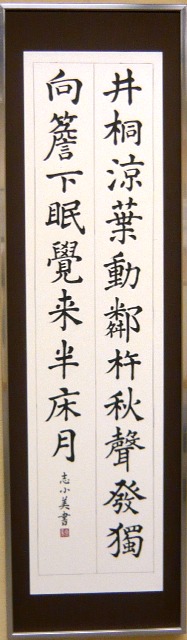 井桐涼葉動鄰杵秋聲發獨
向簷下眠覺来半床月
志小美書